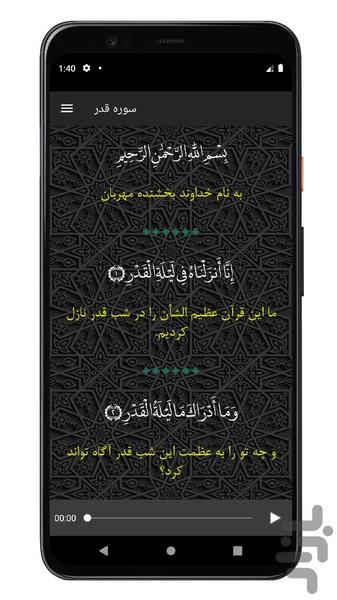 1:40
سوره قدر
بِسْمِ اللَّهِ الرَّحْمَٰنِ الرَّحِيمِ
به نام خداوند بخشنده مهربان
إِنَّا أَنزَلْنَاهُ فِي لَيْلَةِ الْقَدْرِ ﴿١﴾
ما این قرآن عظیم الشأن را در شب قدر نازل
کردیم.
وَمَا أَدْرَاكَ مَا لَيْلَةُ الْقَدْرِ ﴿٢﴾
و چه تو را به عظمت این شب قدر آگاه تواند
کرد؟
00:00
بازار